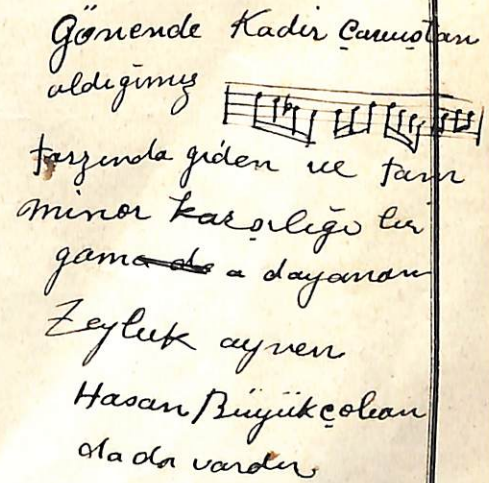 Gönende Kadir Çavuştan
aldığımız
tarzında giden ve tam
minor karşılığı bir
gama dayanan
Zeybek aynen
Hasan Büyükçoban
dada vardır.